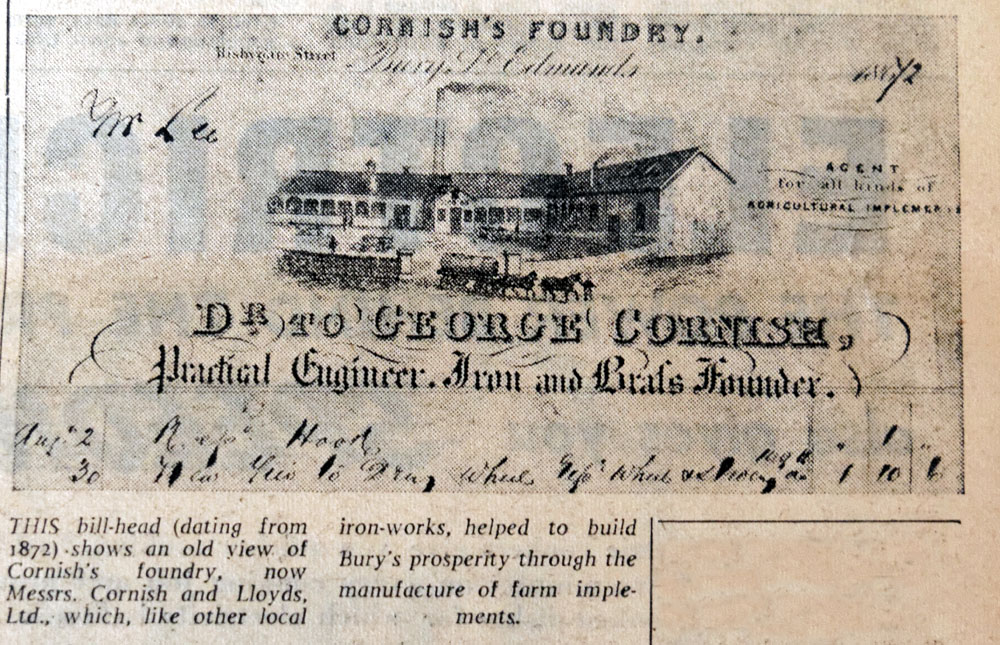 CORNISH'S FOUNDRY.
Risbygate Street Bury St Edmunds
1872
Mr Lee
AGENT
for all kinds of
AGRICULTURAL IMPLEMENTS
DR TO GEORGE CORNISH,
Practical Engineer. Iron and Brass Founder.
Aug 2 Hood 1 "
30 New to Wheel Wheel 1 10 6
THIS bill-head (dating from
1872) shows an old view of
Cornish's foundry, now
Messrs. Cornish and Lloyds,
Ltd., which, like other local
iron-works, helped to build
Bury's prosperity through the
manufacture of farm imple-
ments.